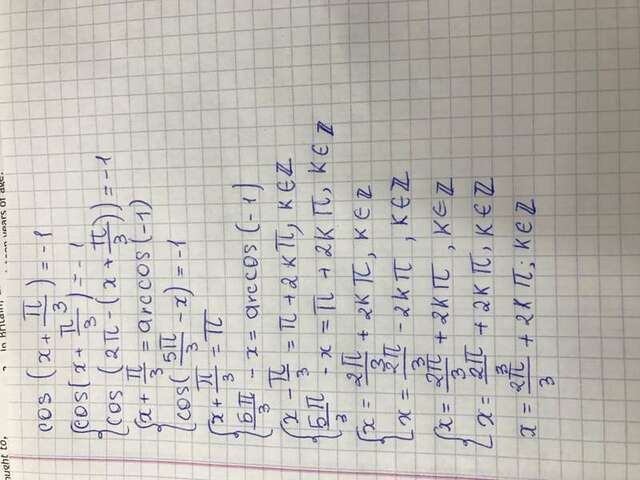 ought to,
in Britain,
teen years of age.
cos (x + π/3) = -1
{cos(x + π/3) = -1
cos (2π - (x + π/3)) = -1
{x + π/3 = arccos(-1)
cos(5π/3 - x) = -1
{x + π/3 = π
5π/3 - x = arccos(-1)
{x - π/3 = π + 2kπ, k∈ℤ
5π/3 - x = π + 2kπ, k∈ℤ
{x = 2π/3 + 2kπ, k∈ℤ
x = 2π/3 - 2kπ, k∈ℤ
{x = 2π/3 + 2kπ, k∈ℤ
x = 2π/3 + 2kπ, k∈ℤ
x = 2π/3 + 2kπ; k∈ℤ